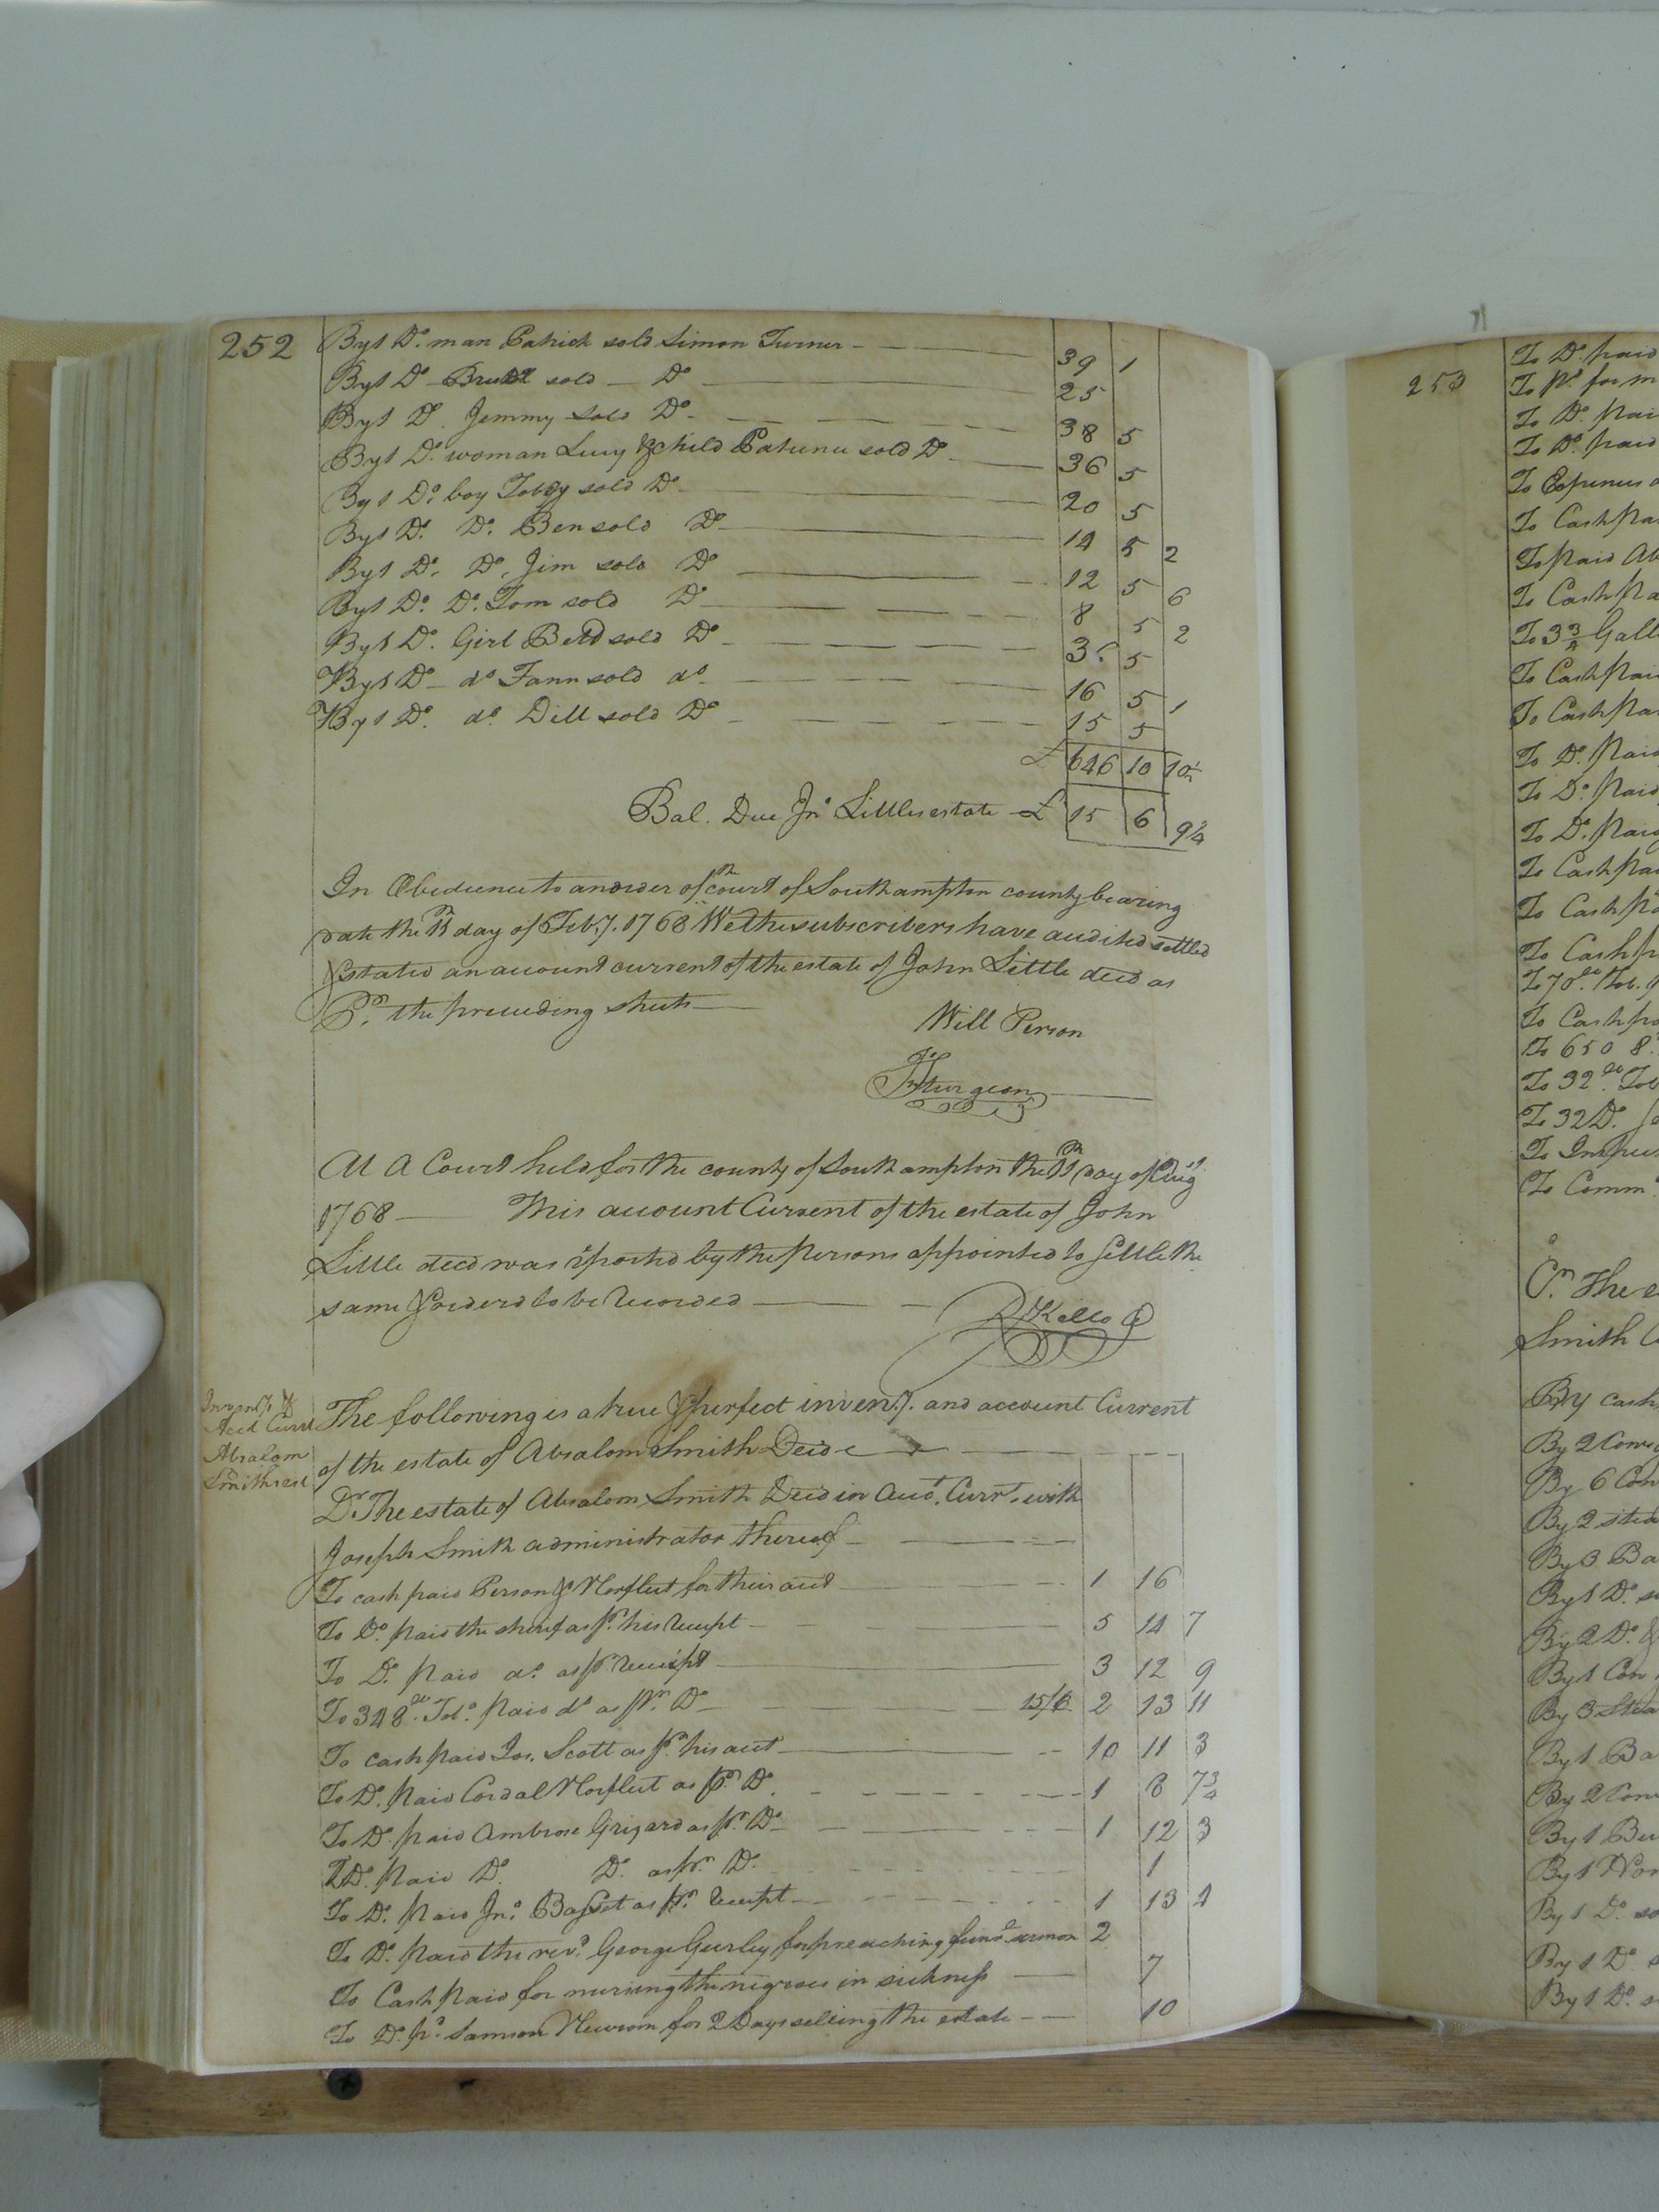 252
By 1 Do. man Patrick sold Simon Turner 39 1
By 1 Do Bristol sold Do 25
By 1 Do. Jemmy sold Do 38 5
By 1 Do. woman Lucy & child sold Do 36 5
By 1 Do. boy Tobey sold Do 20 5
By 1 Do. Do. Ben sold Do 14 5 2
By 1 Do. Do. Jim sold Do 12 5 6
By 1 Do. Do. Tom sold Do 8 5 2
By 1 Do. Girl sold Do 5
By 1 Do do Fann sold do 16 5 1
By 1 Do. do. Dill sold Do 15 5
£ 646 10 10½
Bal. Due Jno Littles estate £ 15 6 9¼
In Obedience to an order of th court of Southampton county bearing
date the 11th day of Feby. 1768 We the subscribers have audited settled
& stated an account current of the estate of John Little decd as
Pr. the preceeding sheets
Will Person
Jo Sturgeon
At A Court held for the county of Southampton the 11th day of Augst
1768 This account Current of the estate of John
Little decd was reported by the persons appointed to settle the
same & orderd to be recorded
R Kello C
Inventy &
Acct Currt
Absalom
Smiths est
The following is a true & perfect inventy. and account Current
of the estate of Absalom Smith Decd
Dr. The estate of Absalom Smith Decd in Acct. Currt. with
Joseph Smith administrator thereof
To cash paid Person & Norfleet for their acct 1 16
To Do. paid the sherif as pr. his receipt 5 14 7
To Do. paid do. as pr. receipt 3 12 9
To 348 lb. Tobo. paid do as pr. Do 15/6 2 13 11
To cash paid Jos. Scott as pr. his acct 10 11 3
To Do. paid Cordal Norfleet as pr. Do. 1 8 7¾
To Do. paid Ambrose Grizard as pr. Do 1 12 3
To Do. paid Do. Do. as pr. Do. 1
To Do. paid Jno. Basset as pr. receipt 1 13 4
To Do. paid the revd. George Gurley for preaching funl. sermon 2
To Cash paid for nursing the negroes in sickness 7
To Do. pd. Samson Newsom for 2 Days selling the estate 10
253
To Do. paid
To pd. for m
To Do. pai
To Do. paid
To Expences o
To Cash pa
To paid Ab
To Cash pa
To 3¾ Gall
To Cash pai
To Cash pa
To Do. paid
To Do. paid
To Do. paid
To Cash pai
To Cash pa
To Cash p
To 70 lb. Tob.
To Cash pa
To 650 8
To 32 lb. Tob
To 32 Do.
To
To Comm
Cr. The e
Smith
By cash
By 2 Cows
By 6 Cow
By 2 stea
By 3 Ba
By 1 Do. s
By 2 Do. &
By 1 Cow
By 3 Stea
By 1 Ba
By 2 Cow
By 1 Bu
By 1 Hor
By 1 Do. so
By 1 Do. s
By 1 Do. s